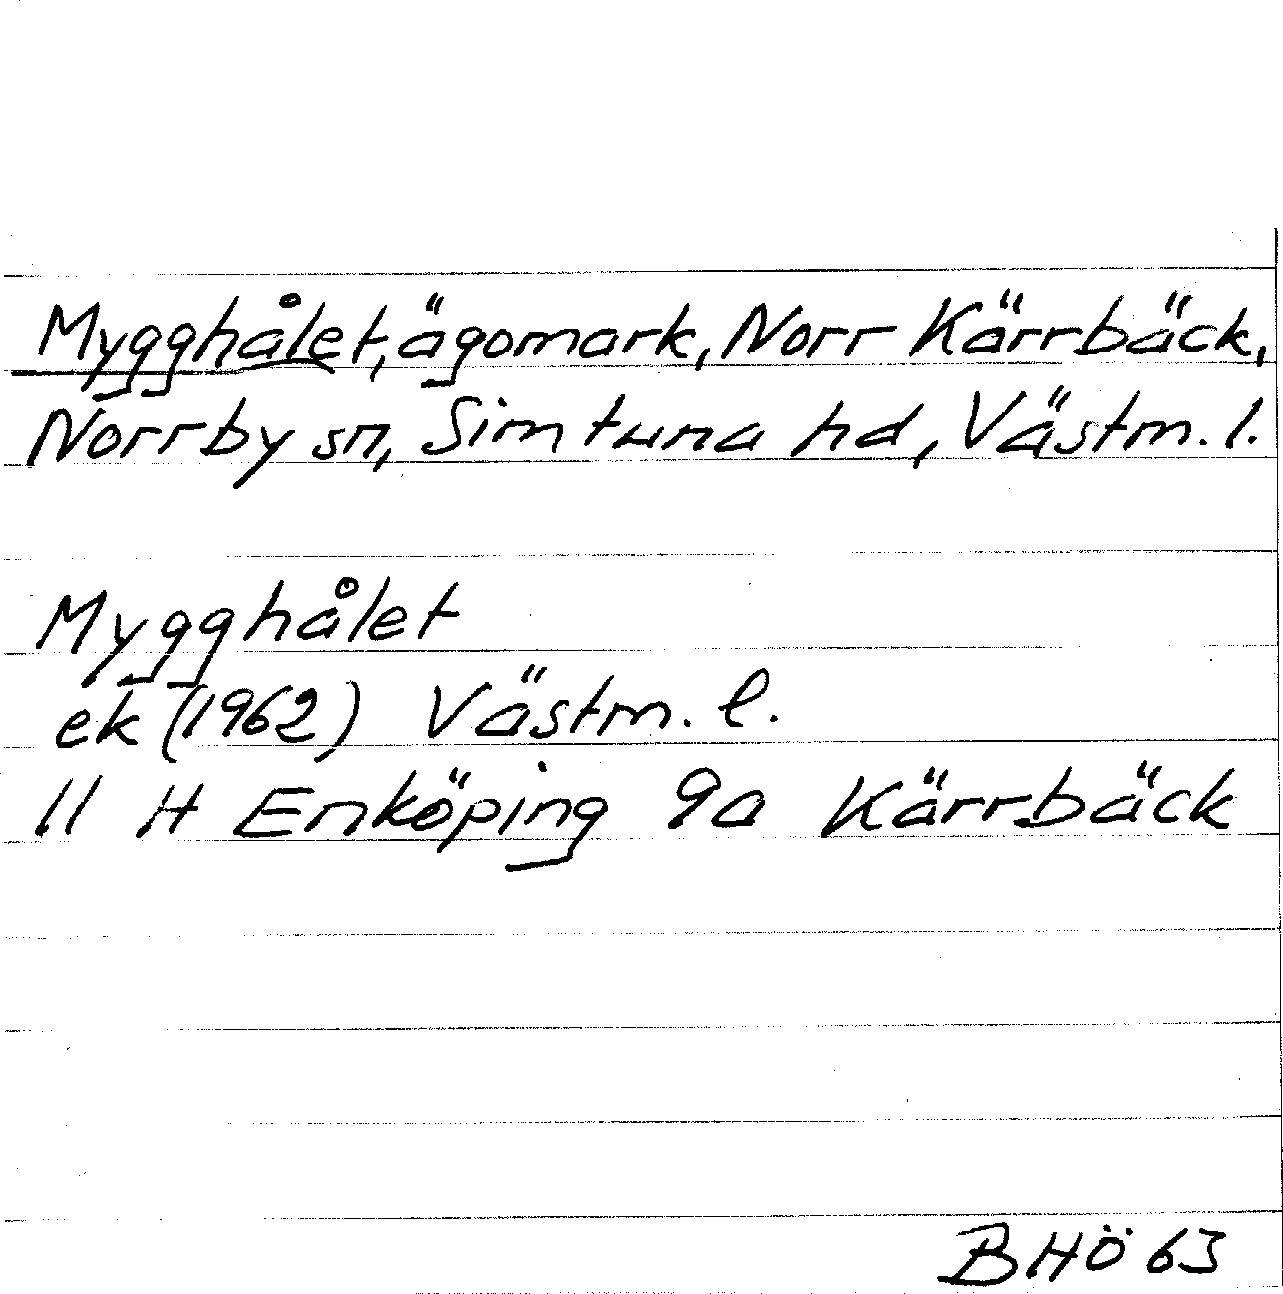 Mygghålet, ägomark, Norr Kärrbäck,
Norrby sn, Simtuna hd, Västm. l.
Mygghålet
ek (1962) Västm. l.
11 H Enköping 9a Kärrbäck
BHÖ 63